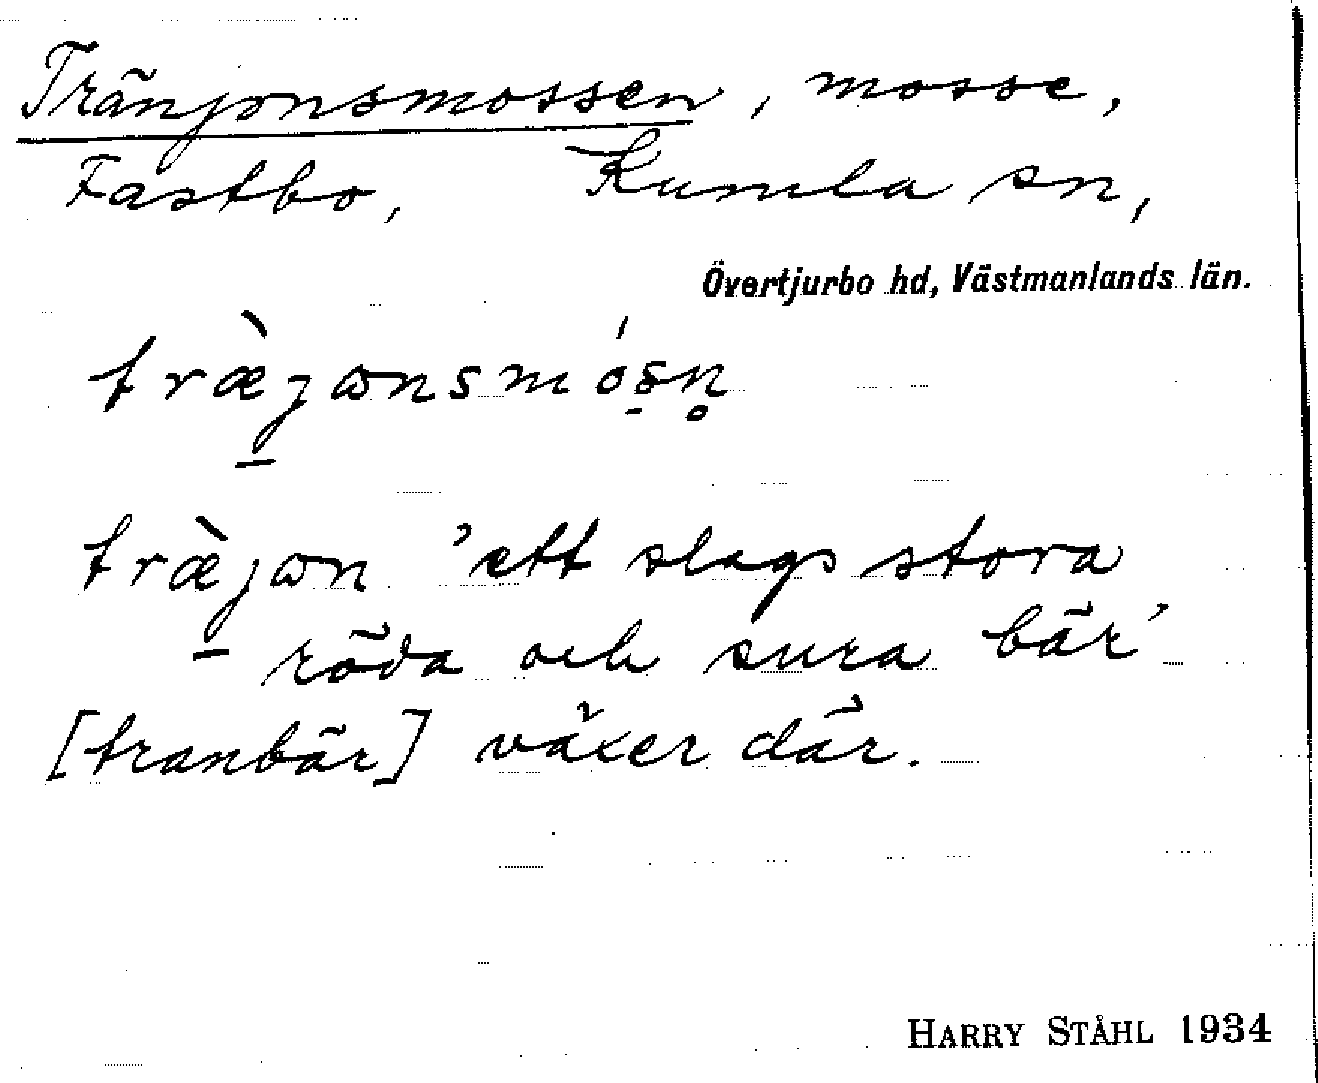 Tränjonsmossen, mosse,
Fastbo, Kumla sn,
Övertjurbo hd, Västmanlands län.
træ̀jɷnsmós̠n̥
træ̀jɷn ’ett slags stora
röda och sura bär’
[tranbär] växer där.
HARRY STÅHL 1934